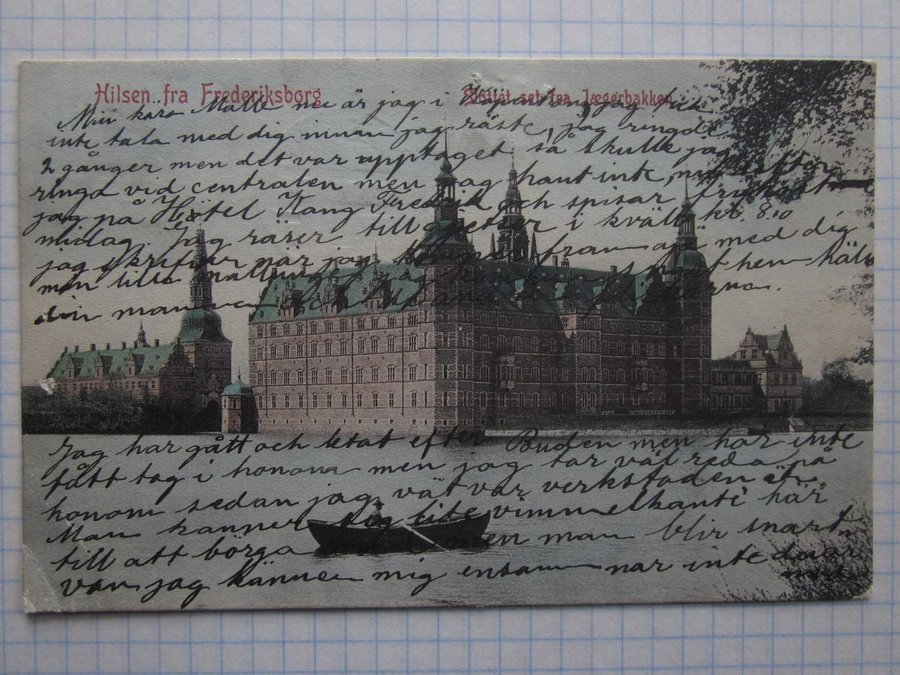 Hilsen fra Frederiksborg
Slottet set fra Jægerbakken
Min kära Malle nu är jag i
inte tala med dig innan jag reste, jag ringde
2 gånger men det var upptaget så skulle jag
ringa vid centralen men jag hant inte, nu
jag på Hotel Kung Fredrik och spisar
midag. Jag reser till i kväll kl. 8.10
jag skrifver när jag kommer fram
min lilla hem
din man
Jag har gått och letat efter Buden men har inte
fått tag i honom men jag tar väl reda på
honom sedan jag vät var verkstaden är.
Man känner sig lite vimmelkantig här
till att börja med men man blir snart
van, jag känner mig ensam när inte du är